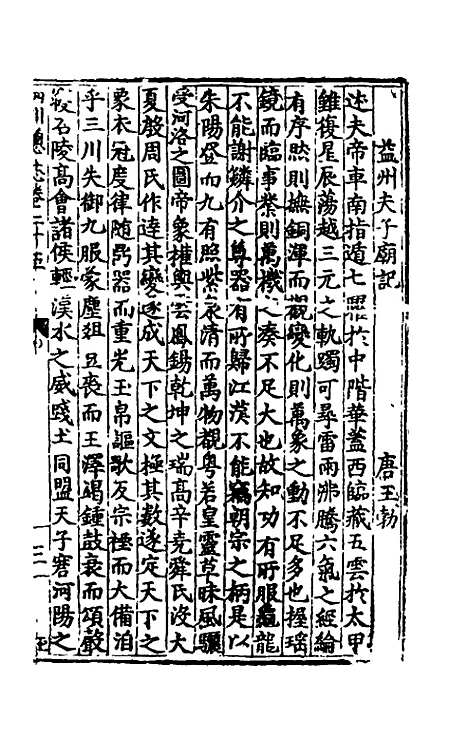 益州夫子廟記　　唐王勃
述夫帝車南指遁七曜於中階華蓋西臨藏五雲於太甲
雖復星辰蕩越三元之軌躅可尋雷雨沸騰六氣之經綸
有序然則撫銅渾而觀變化則萬象之動不足多也握瑶
鏡而臨事業則萬機之湊不足大也故知功有所服龜龍
不能謝鱗介之尊器有所歸江漢不能竊朝宗之柄是以
朱陽登而九有照紫泉清而萬物覩粤若皇靈草昧風驪
受河洛之圖帝象權輿雲鳳錫乾坤之瑞高辛堯舜氏没大
夏殷周氏作達其變遂成天下之文極其數遂定天下之
象衣冠度律隨鼎器而重光玉帛謳歌反宗禋而大備洎
乎三川失御九服蒙塵俎豆喪而王澤竭鍾鼓衰而頌聲
寢召陵高會諸侯輕漢水之威踐土同盟天子窘河陽之